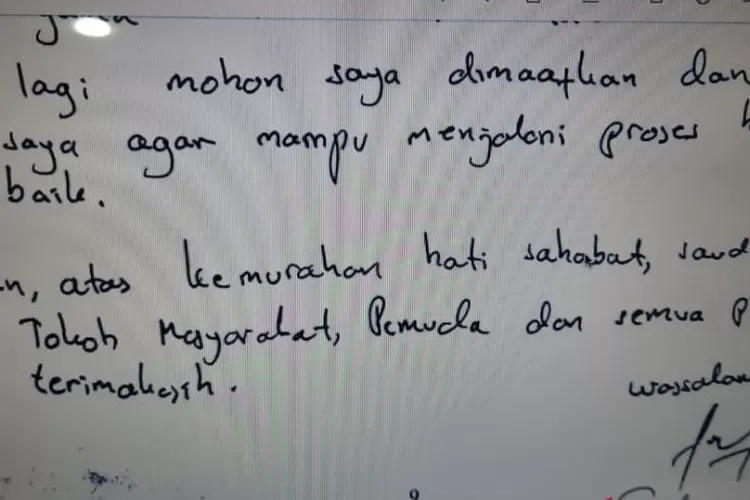 lagi mohon saya dimaafkan dan
saya agar mampu menjalani proses
baik.
n, atas kemurahan hati sahabat, saud
Tokoh Masyarakat, Pemuda dan semua P
terimakasih.
wassalam
9